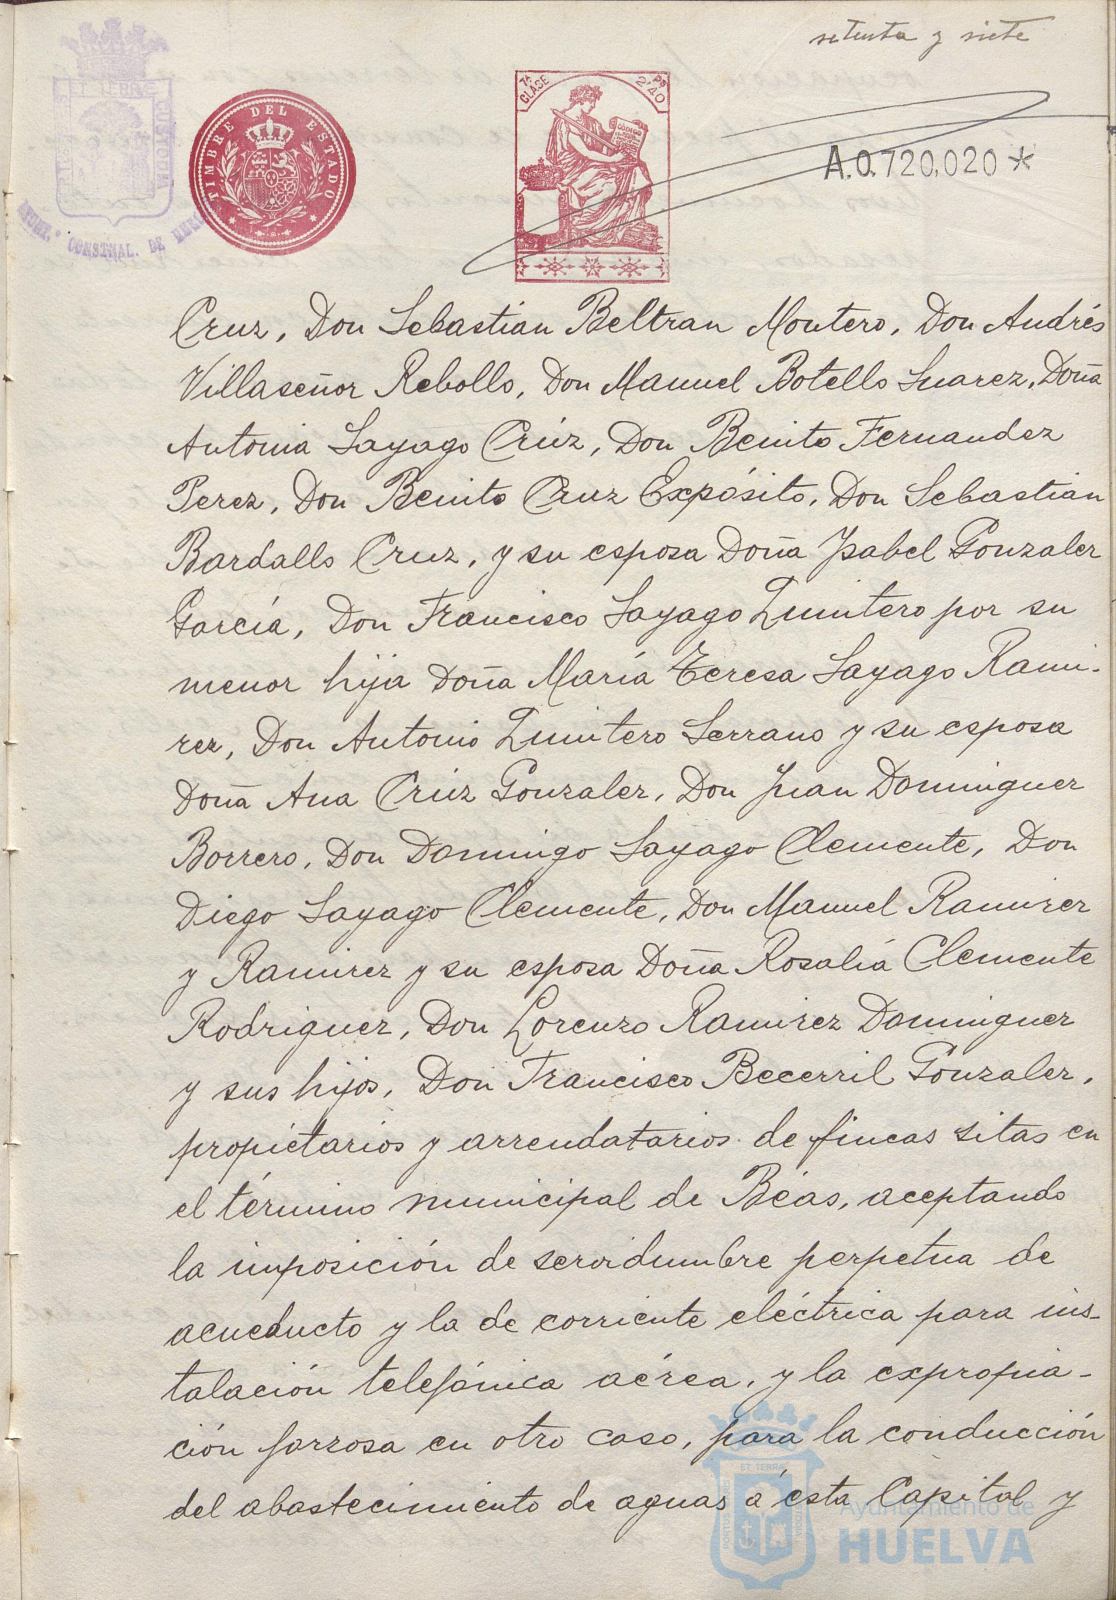 setenta y siete
TIMBRE DEL ESTADO
7ª CLASE
PS 2'40
CÓDIGO
A.0.720,020*
ET TERRÆ
CUSTODIA
CONSTNAL. DE
Cruz, Don Sebastián Beltran Montero, Don Andrés
Villaseñor Rebollo, Don Manuel Botello Suarez, Doña
Antonia Sayago Crúz, Don Benito Fernandez
Perez, Don Benito Cruz Expósito, Don Sebastian
Bardallo Cruz, y su esposa Doña Ysabel Gonzalez
García, Don Francisco Sayago Quintero por su
menor hija Doña María Teresa Sayago Rami-
rez, Don Antonio Quintero Serrano y su esposa
Doña Ana Crúz Gonzalez, Don Juan Dominguez
Borrero, Don Domingo Sayago Clemente, Don
Diego Sayago Clemente, Don Manuel Ramirez
y Ramirez y su esposa Doña Rosalía Clemente
Rodriguez, Don Lorenzo Ramirez Dominguez
y sus hijos, Don Francisco Becerril Gonzalez,
propietarios y arrendatarios de fincas sitas en
el término municipal de Béas, aceptando
la imposición de servidumbre perpetua de
acueducto y la de corriente eléctrica para ins-
talación telefónica aérea, y la expropia-
ción forzosa en otro caso, para la conducción
del abastecimiento de aguas á ésta Capital y
ET TERRÆ
Ayuntamiento de
HUELVA